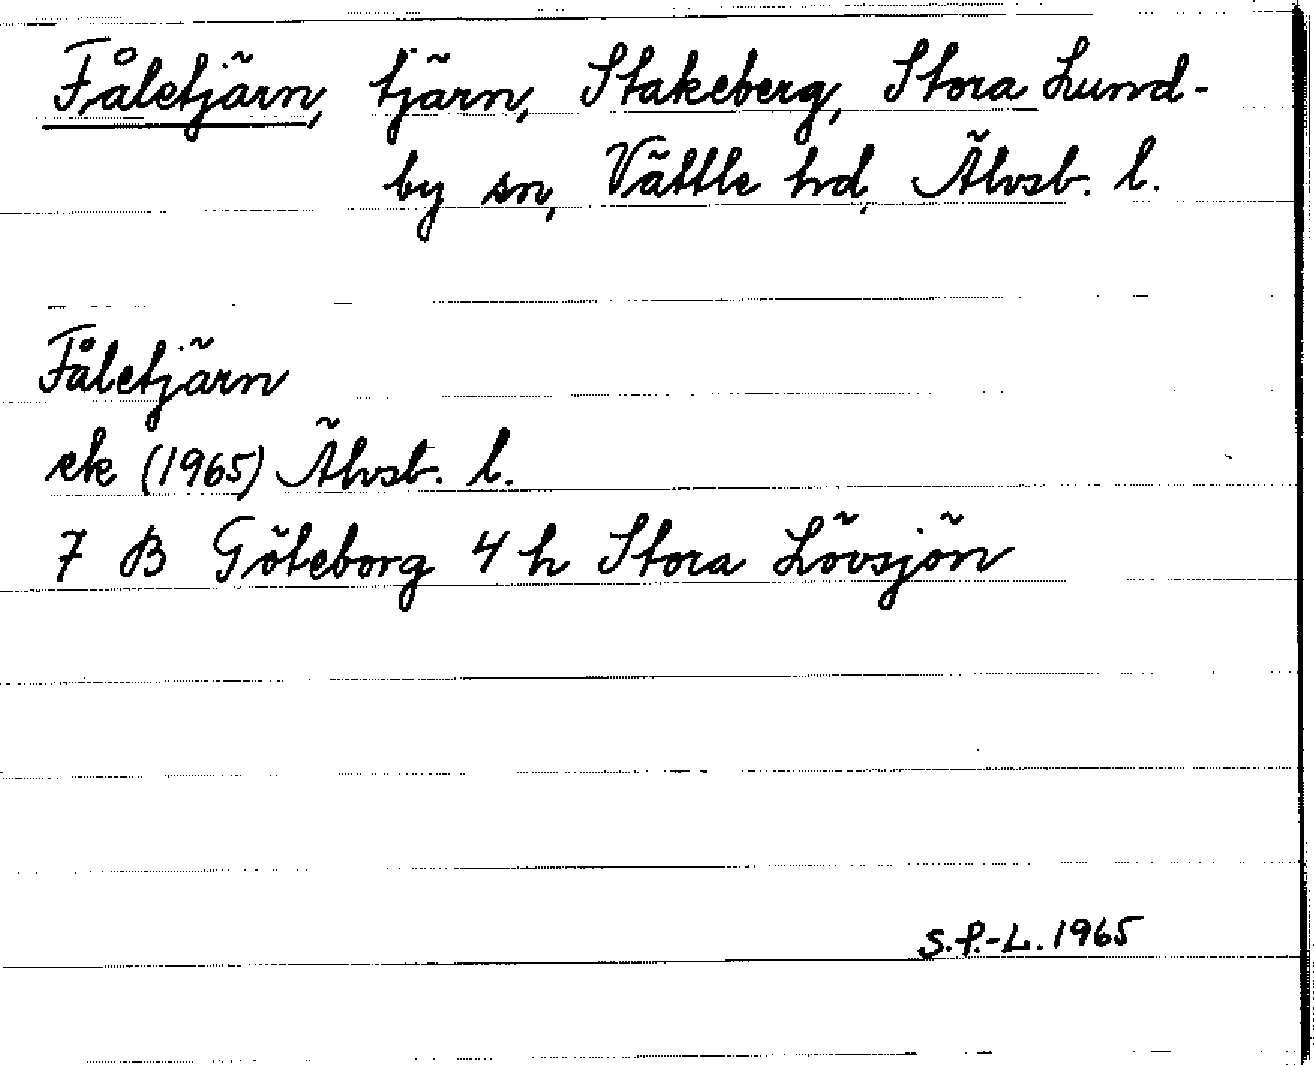 Fåletjärn, tjärn, Stakeberg, Stora Lund-
by sn, Vättle hd, Älvsb. l.
Fåletjärn
ek (1965) Älvsb. l.
7 B Göteborg 4 h Stora Lövsjön
S.P.-L. 1965